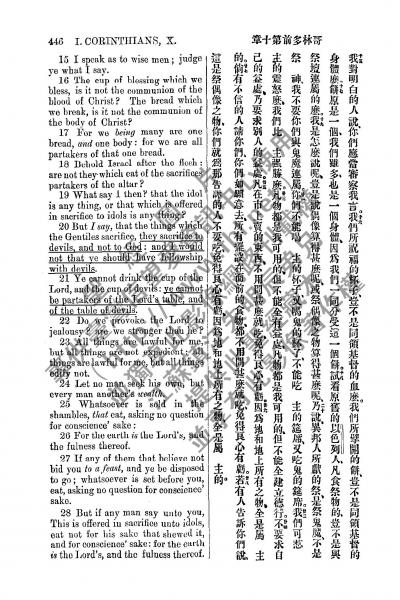 446 I. CORINTHIANS, X.
15 I speak as to wise men; judge
ye what I say.
16 The cup of blessing which we
bless, is it not the communion of the
blood of Christ? The bread which
we break, is it not the communion of
the body of Christ?
17 For we being many are one
bread, and one body: for we are all
partakers of that one bread.
18 Behold Israel after the flesh:
are not they which eat of the sacrifices
partakers of the altar?
19 What say I then? that the idol
is any thing, or that which is offered
in sacrifice to idols is any thing?
20 But I say, that the things which
the Gentiles sacrifice, they sacrifice to
devils, and not to God: and I would
not that ye should have fellowship
with devils.
21 Ye cannot drink the cup of the
Lord, and the cup of devils: ye cannot
be partakers of the Lord's table, and
of the table of devils.
22 Do we provoke the Lord to
jealousy? are we stronger than he?
23 All things are lawful for me,
but all things are not expedient: all
things are lawful for me, but all things
edify not.
24 Let no man seek his own, but
every man another's wealth.
25 Whatsoever is sold in the
shambles, that eat, asking no question
for conscience' sake:
26 For the earth is the Lord's, and
the fulness thereof.
27 If any of them that believe not
bid you to a feast, and ye be disposed
to go; whatsoever is set before you,
eat, asking no question for conscience'
sake.
28 But if any man say unto you,
This is offered in sacrifice unto idols,
eat not for his sake that shewed it,
and for conscience' sake: for the earth
is the Lord's, and the fulness thereof.
哥林多前第十章
我對明白的人說你們應當審察我言我們所祝福的杯豈不是同領基督的血麽我們所擘開的餅豈不是同領基督的
身體麽餅原是一個我們雖多也是一個身體因為我們一同分受這一個餅試看原舊的以色列人凡食祭物的豈不是與
祭壇連屬的麽我是怎麽說呢豈是說偶像算得甚麽呢或祭偶像之物算得甚麽呢乃說異邦人所獻的祭是祭鬼魔不是
祭 神我不要你們與鬼魔連屬你們不能 主的杯又鬼魔的杯不能吃 主的筵席又吃鬼魔的筵席我們可惹
主的震怒麽我們比 主凡物都是我可用的但不全有益處凡物都是我可用的但不能全建立德行不要求自
己的益處乃要求別人的益處凡在市上賣的東西不用問甚麽就吃免得良心有虧因為地和地上所有之物全是屬 主
的倘有不信的人請你們你們若願意去凡擺設在面前的食物都不用問甚麽就吃免得良心有虧若有人告訴你們說
這是祭偶像之物你們就為那告訴的人不要吃免得良心有虧因為地和地上所有之物全是屬 主的